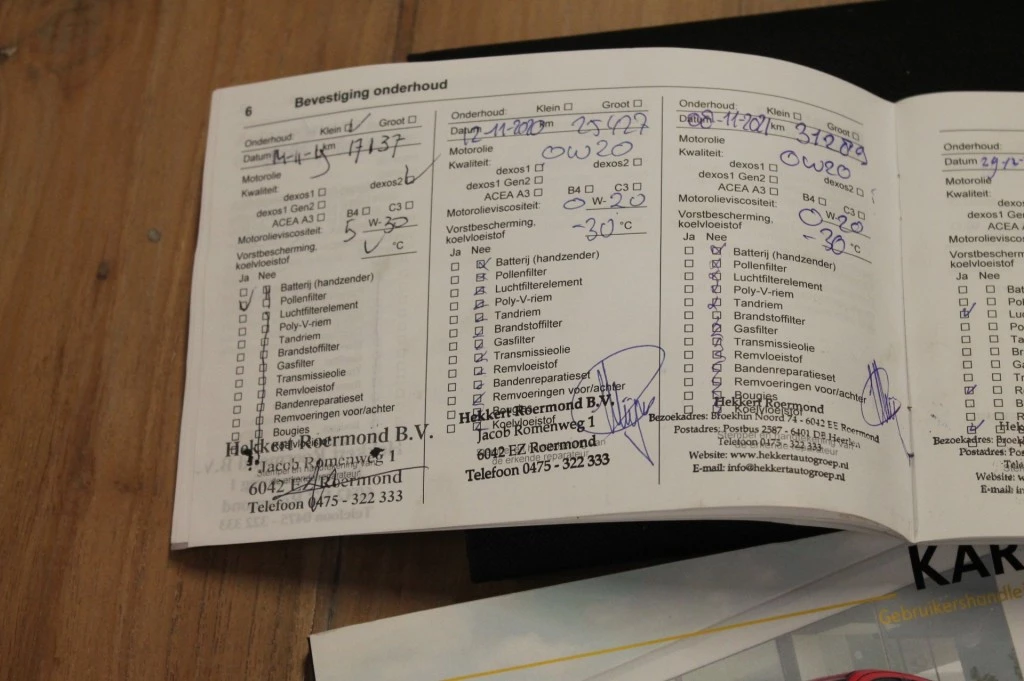 6 Bevestiging onderhoud
Onderhoud: Klein Groot
Datum km 17137
Motorolie
Kwaliteit: dexos1 dexos2
dexos1 Gen2
ACEA A3 B4 C3
Motorolieviscositeit: 5 W-30
Vorstbescherming, koelvloeistof °C
Ja Nee
Batterij (handzender)
Pollenfilter
Luchtfilterelement
Poly-V-riem
Tandriem
Brandstoffilter
Gasfilter
Transmissieolie
Remvloeistof
Bandenreparatieset
Remvoeringen voor/achter
Bougies
Koelvloeistof
Hekkert Roermond B.V.
Jacob Romenweg 1
6042 EZ Roermond
Telefoon 0475 - 322 333
Onderhoud: Klein Groot
Datum 12-11-2020 km 25427
Motorolie 0W20
Kwaliteit: dexos1 dexos2
dexos1 Gen2
ACEA A3 B4 C3
Motorolieviscositeit: 0 W-20
Vorstbescherming, koelvloeistof -30 °C
Ja Nee
Batterij (handzender)
Pollenfilter
Luchtfilterelement
Poly-V-riem
Tandriem
Brandstoffilter
Gasfilter
Transmissieolie
Remvloeistof
Bandenreparatieset
Remvoeringen voor/achter
Bougies
Koelvloeistof
Hekkert Roermond B.V.
Jacob Romenweg 1
6042 EZ Roermond
de erkende reparateur
Telefoon 0475 - 322 333
Onderhoud: Klein Groot
Datum 08-11-2021 km 31289
Motorolie 0W20
Kwaliteit: dexos1 dexos2
dexos1 Gen2
ACEA A3 B4 C3
Motorolieviscositeit: 0 W-20
Vorstbescherming, koelvloeistof -30 °C
Ja Nee
Batterij (handzender)
Pollenfilter
Luchtfilterelement
Poly-V-riem
Tandriem
Brandstoffilter
Gasfilter
Transmissieolie
Remvloeistof
Bandenreparatieset
Remvoeringen voor/achter
Bougies
Koelvloeistof
Hekkert Roermond
Bezoekadres: Broekhin Noord 74 - 6042 EE Roermond
Postadres: Postbus 2587 - 6401 DB Heerlen
Telefoon 0475 - 322 333
Website: www.hekkertautogroep.nl
E-mail: info@hekkertautogroep.nl
Onderhoud:
Datum 29
Motorolie
Kwaliteit:
dexos1
dexos1 G
ACEA A
Motorolieviscosi
Vorstbescherming,
koelvloeistof
Ja Nee
Bat
Po
Lu
Po
Ta
Br
G
T
R
B
R
Hek
Bezoekadres: Broek
Postadres: Pos
Tele
Website: w
E-mail: inf
KAR
Gebruikershandle